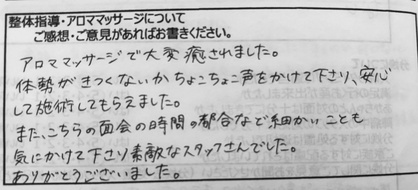 整体指導・アロママッサージについて
ご感想・ご意見があればお書きください。
アロママッサージで大変癒されました。
体勢がきつくないかちょこちょこ声をかけて下さり、安心
して施術してもらえました。
また、こちらの面会の時間の都合など細かいことも
気にかけて下さり素敵なスタッフさんでした。
ありがとうございました。